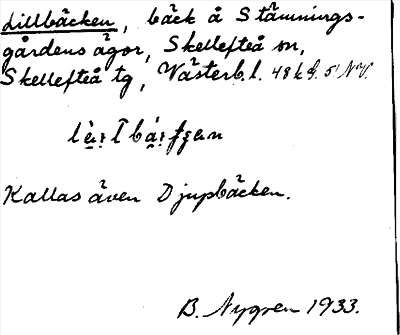 Lillbäcken, bäck å Stämnings-
gårdens ägor, Skellefteå sn,
Skellefteå tg, Västerb. l. 48 k d. 51 NV.
Kallas även Djupbäcken.
B. Nygren 1933.